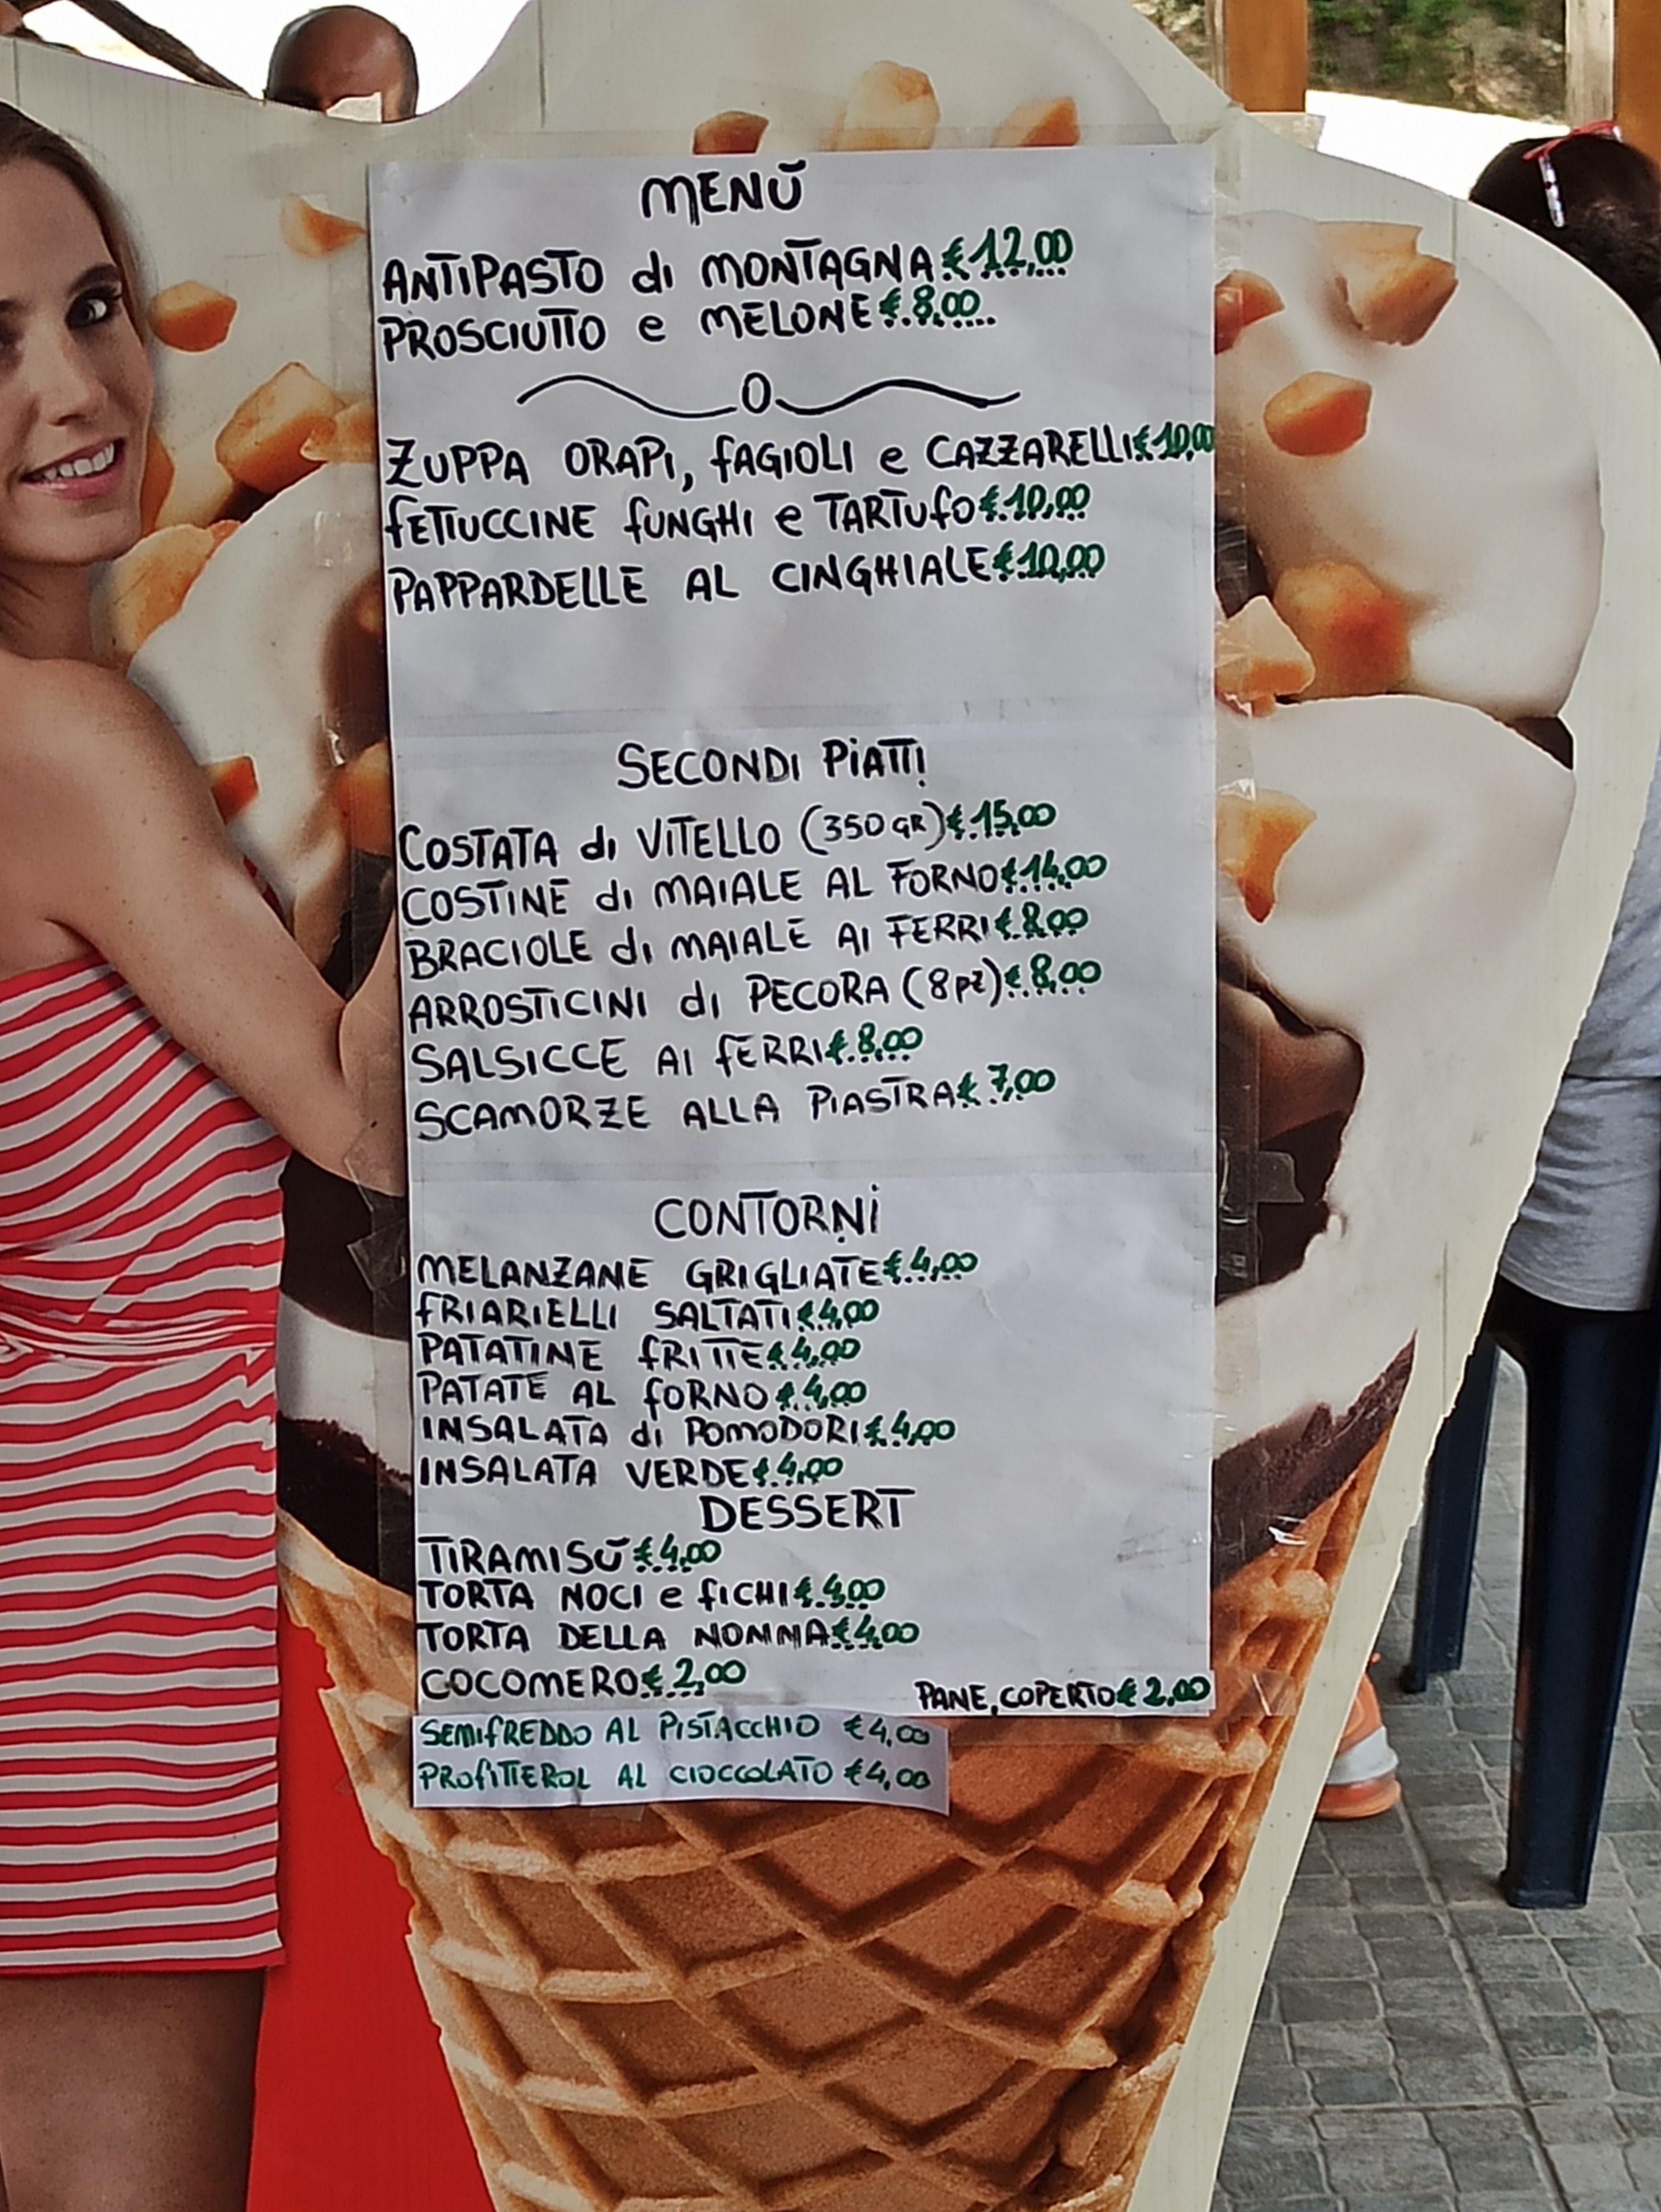 MENÙ
ANTIPASTO di MONTAGNA €.12,00
PROSCIUTTO e MELONE €.8,00
ZUPPA ORAPI, fAGIOLI e CAZZARELLI €10,00
fETTUCCINE fUNGHI e TARTUfO €.10,00
PAPPARDELLE AL CINGHIALE €.10,00
SECONDI PIATTI
COSTATA di VITELLO (350 GR) €.15,00
COSTINE di MAIALE AL FORNO €.14,00
BRACIOLE di MAIALE AI FERRI €.8,00
ARROSTICINI di PECORA (8 pz) €.8,00
SALSICCE AI fERRI €.8,00
SCAMORZE ALLA PIASTRA € 7,00
CONTORNI
MELANZANE GRIGLIATE €.4,00
fRIARIELLI SALTATI €4,00
PATATINE fRITTE €4,00
PATATE AL fORNO €.4,00
INSALATA di POMODORI €.4,00
INSALATA VERDE €.4,00
DESSERT
TIRAMISÙ €.4,00
TORTA NOCI e fICHI €.4,00
TORTA DELLA NONNA €4,00
COCOMERO €.2,00
PANE, COPERTO € 2,00
SEMIFREDDO AL PISTACCHIO €4,00
PROfITTEROL AL CIOCCOLATO €4,00